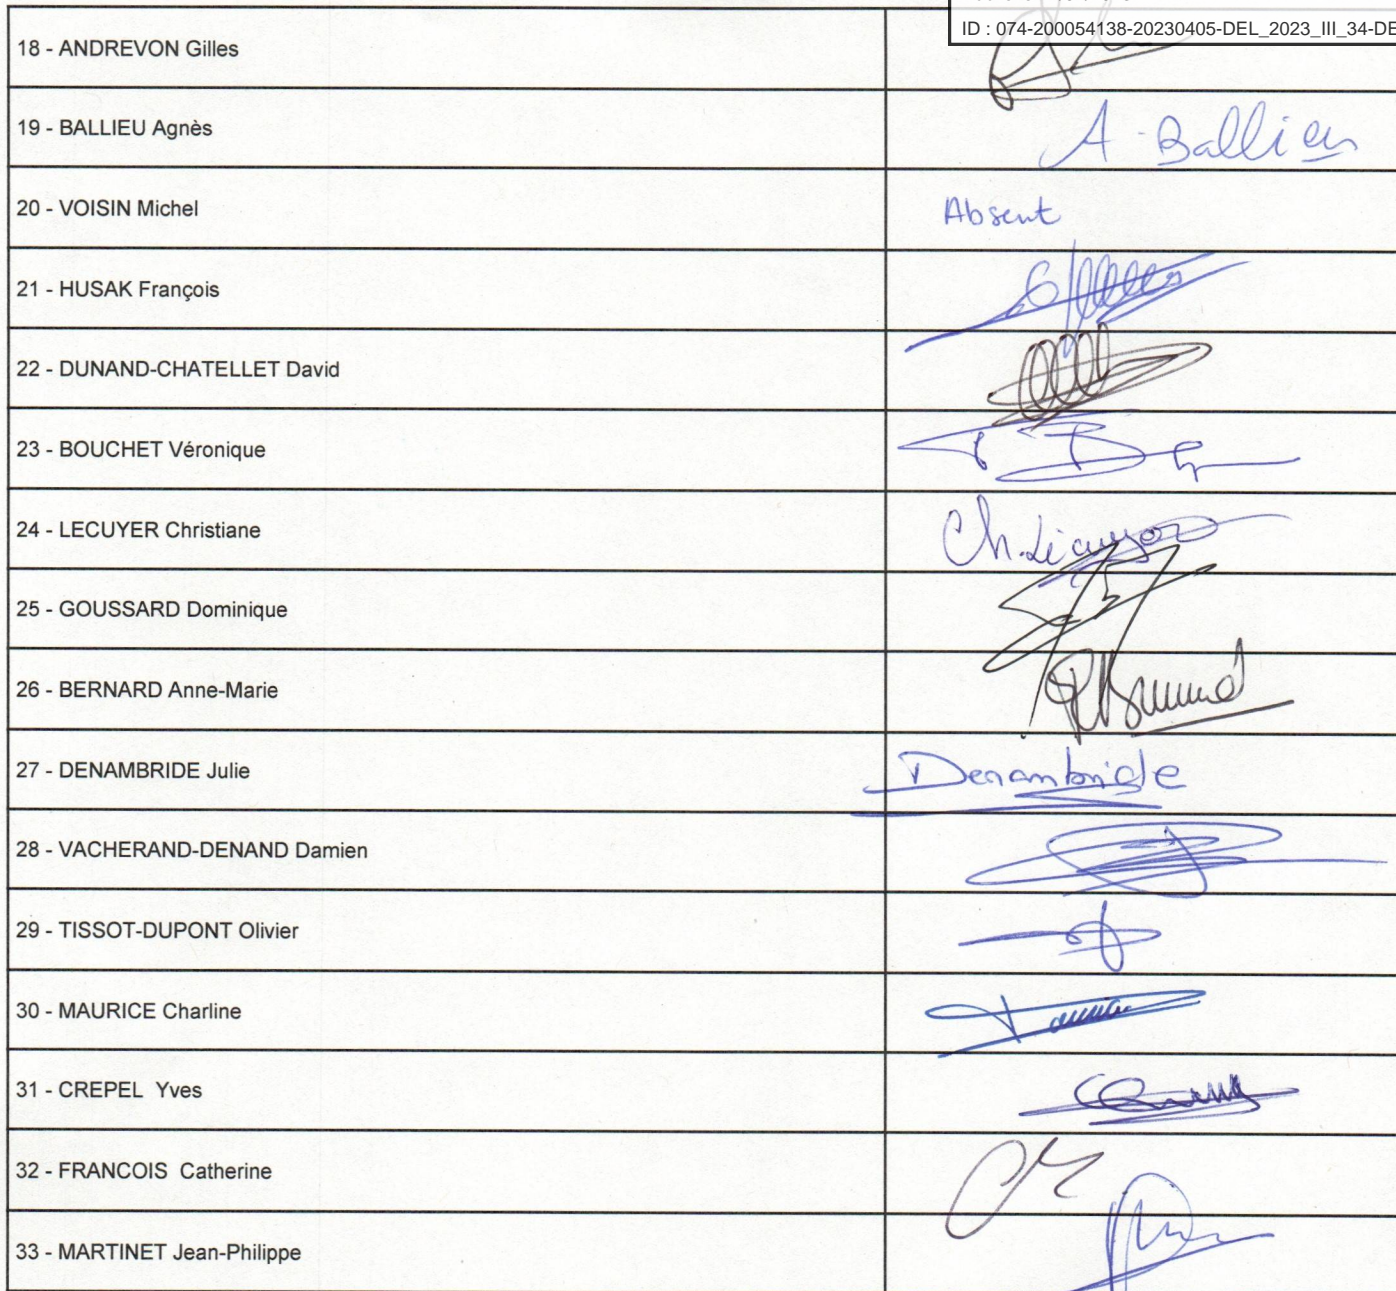 ID : 074-200054138-20230405-DEL_2023_III_34-DE
18 - ANDREVON Gilles
19 - BALLIEU Agnès
A. Ballieu
20 - VOISIN Michel
Absent
21 - HUSAK François
22 - DUNAND-CHATELLET David
23 - BOUCHET Véronique
24 - LECUYER Christiane
Ch. Lécuyer
25 - GOUSSARD Dominique
26 - BERNARD Anne-Marie
27 - DENAMBRIDE Julie
Denambride
28 - VACHERAND-DENAND Damien
29 - TISSOT-DUPONT Olivier
30 - MAURICE Charline
31 - CREPEL Yves
32 - FRANCOIS Catherine
33 - MARTINET Jean-Philippe